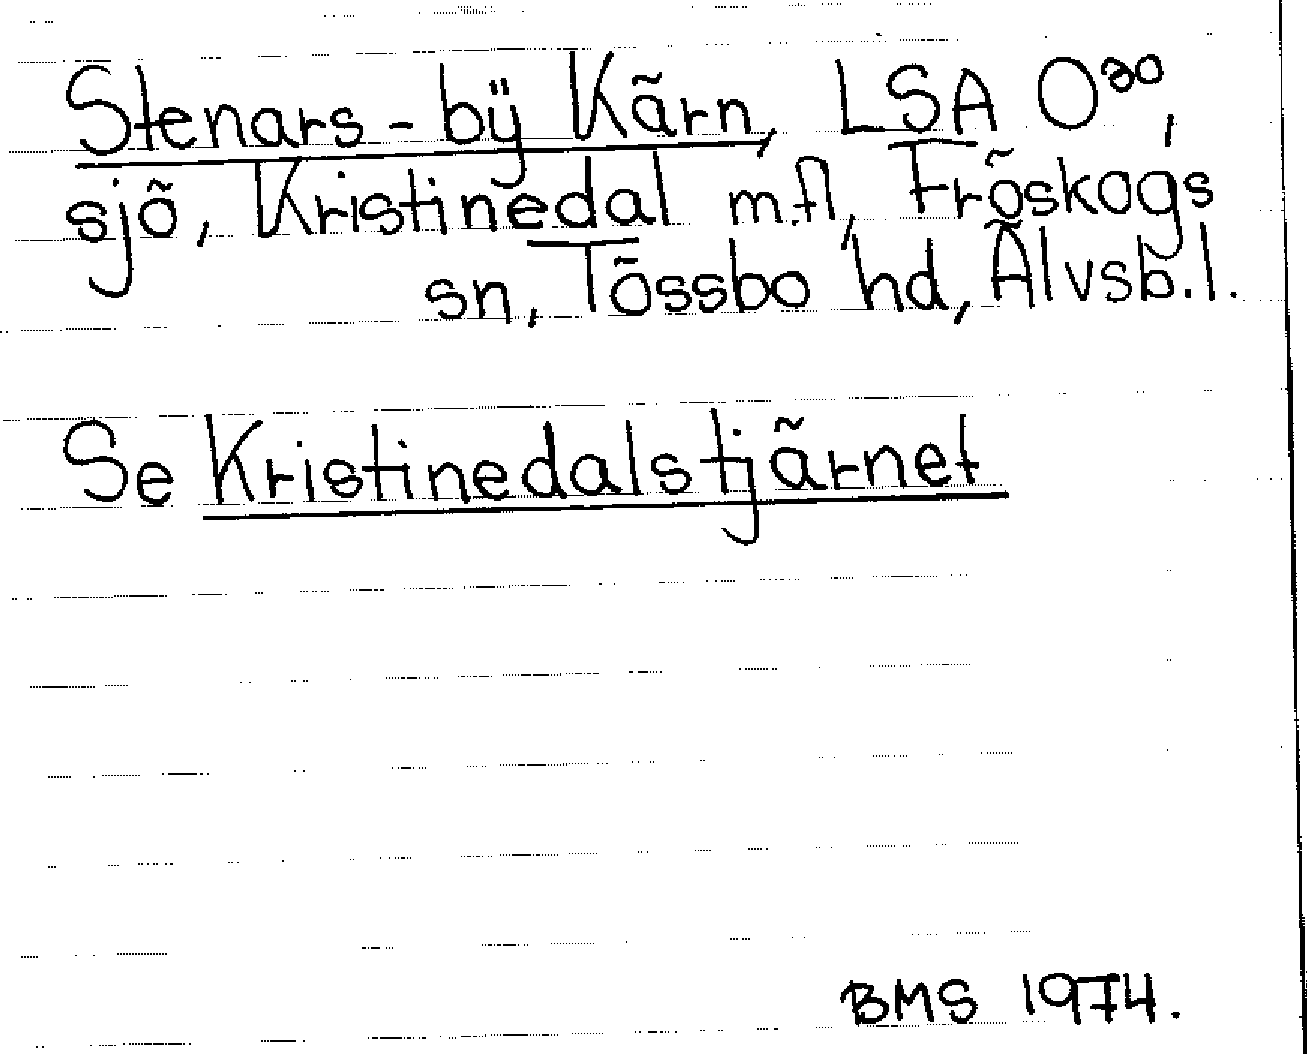 Stenars-bÿ Kärn, LSA O³⁰,
sjö, Kristinedal m.fl, Fröskogs
sn, Tössbo hd, Älvsb.l.
Se Kristinedalstjärnet
BMS 1974.